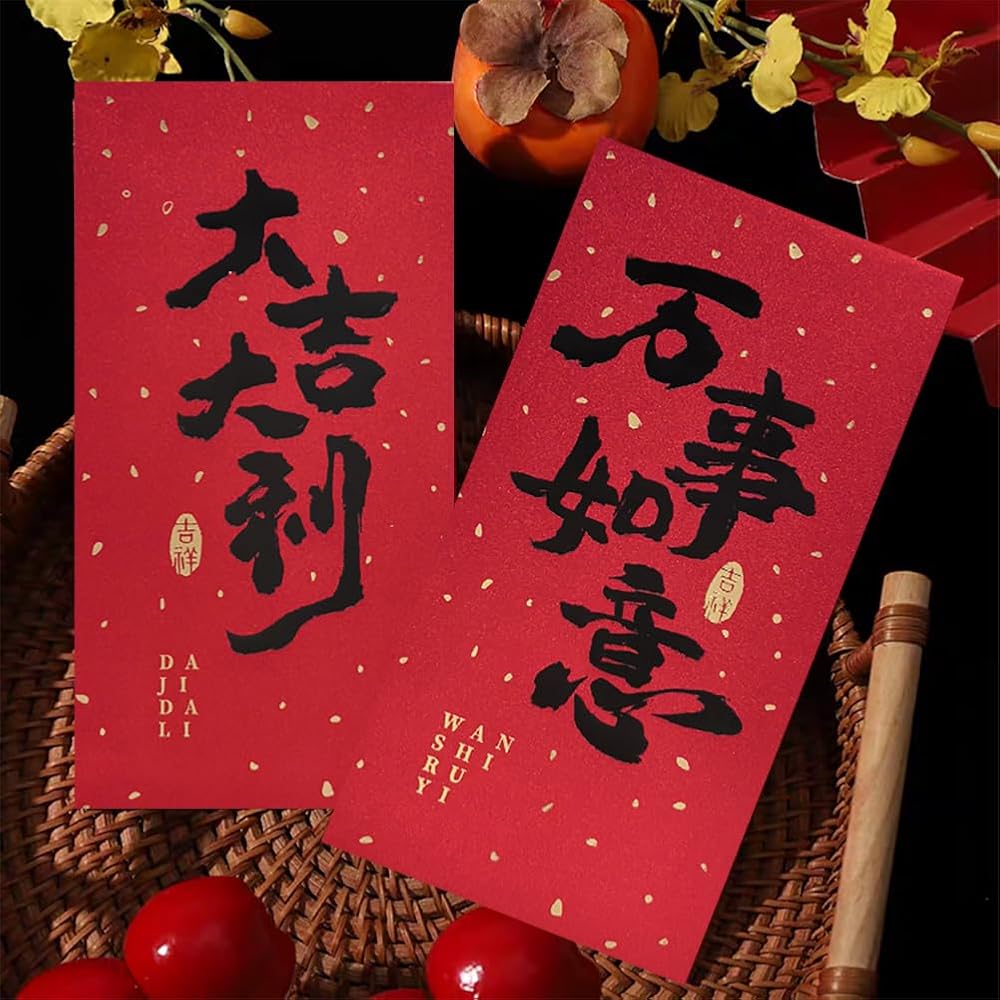 大吉
大利
吉祥
DA
JI
DA
LI
万事
如意
吉祥
WAN
SHI
RU
YI